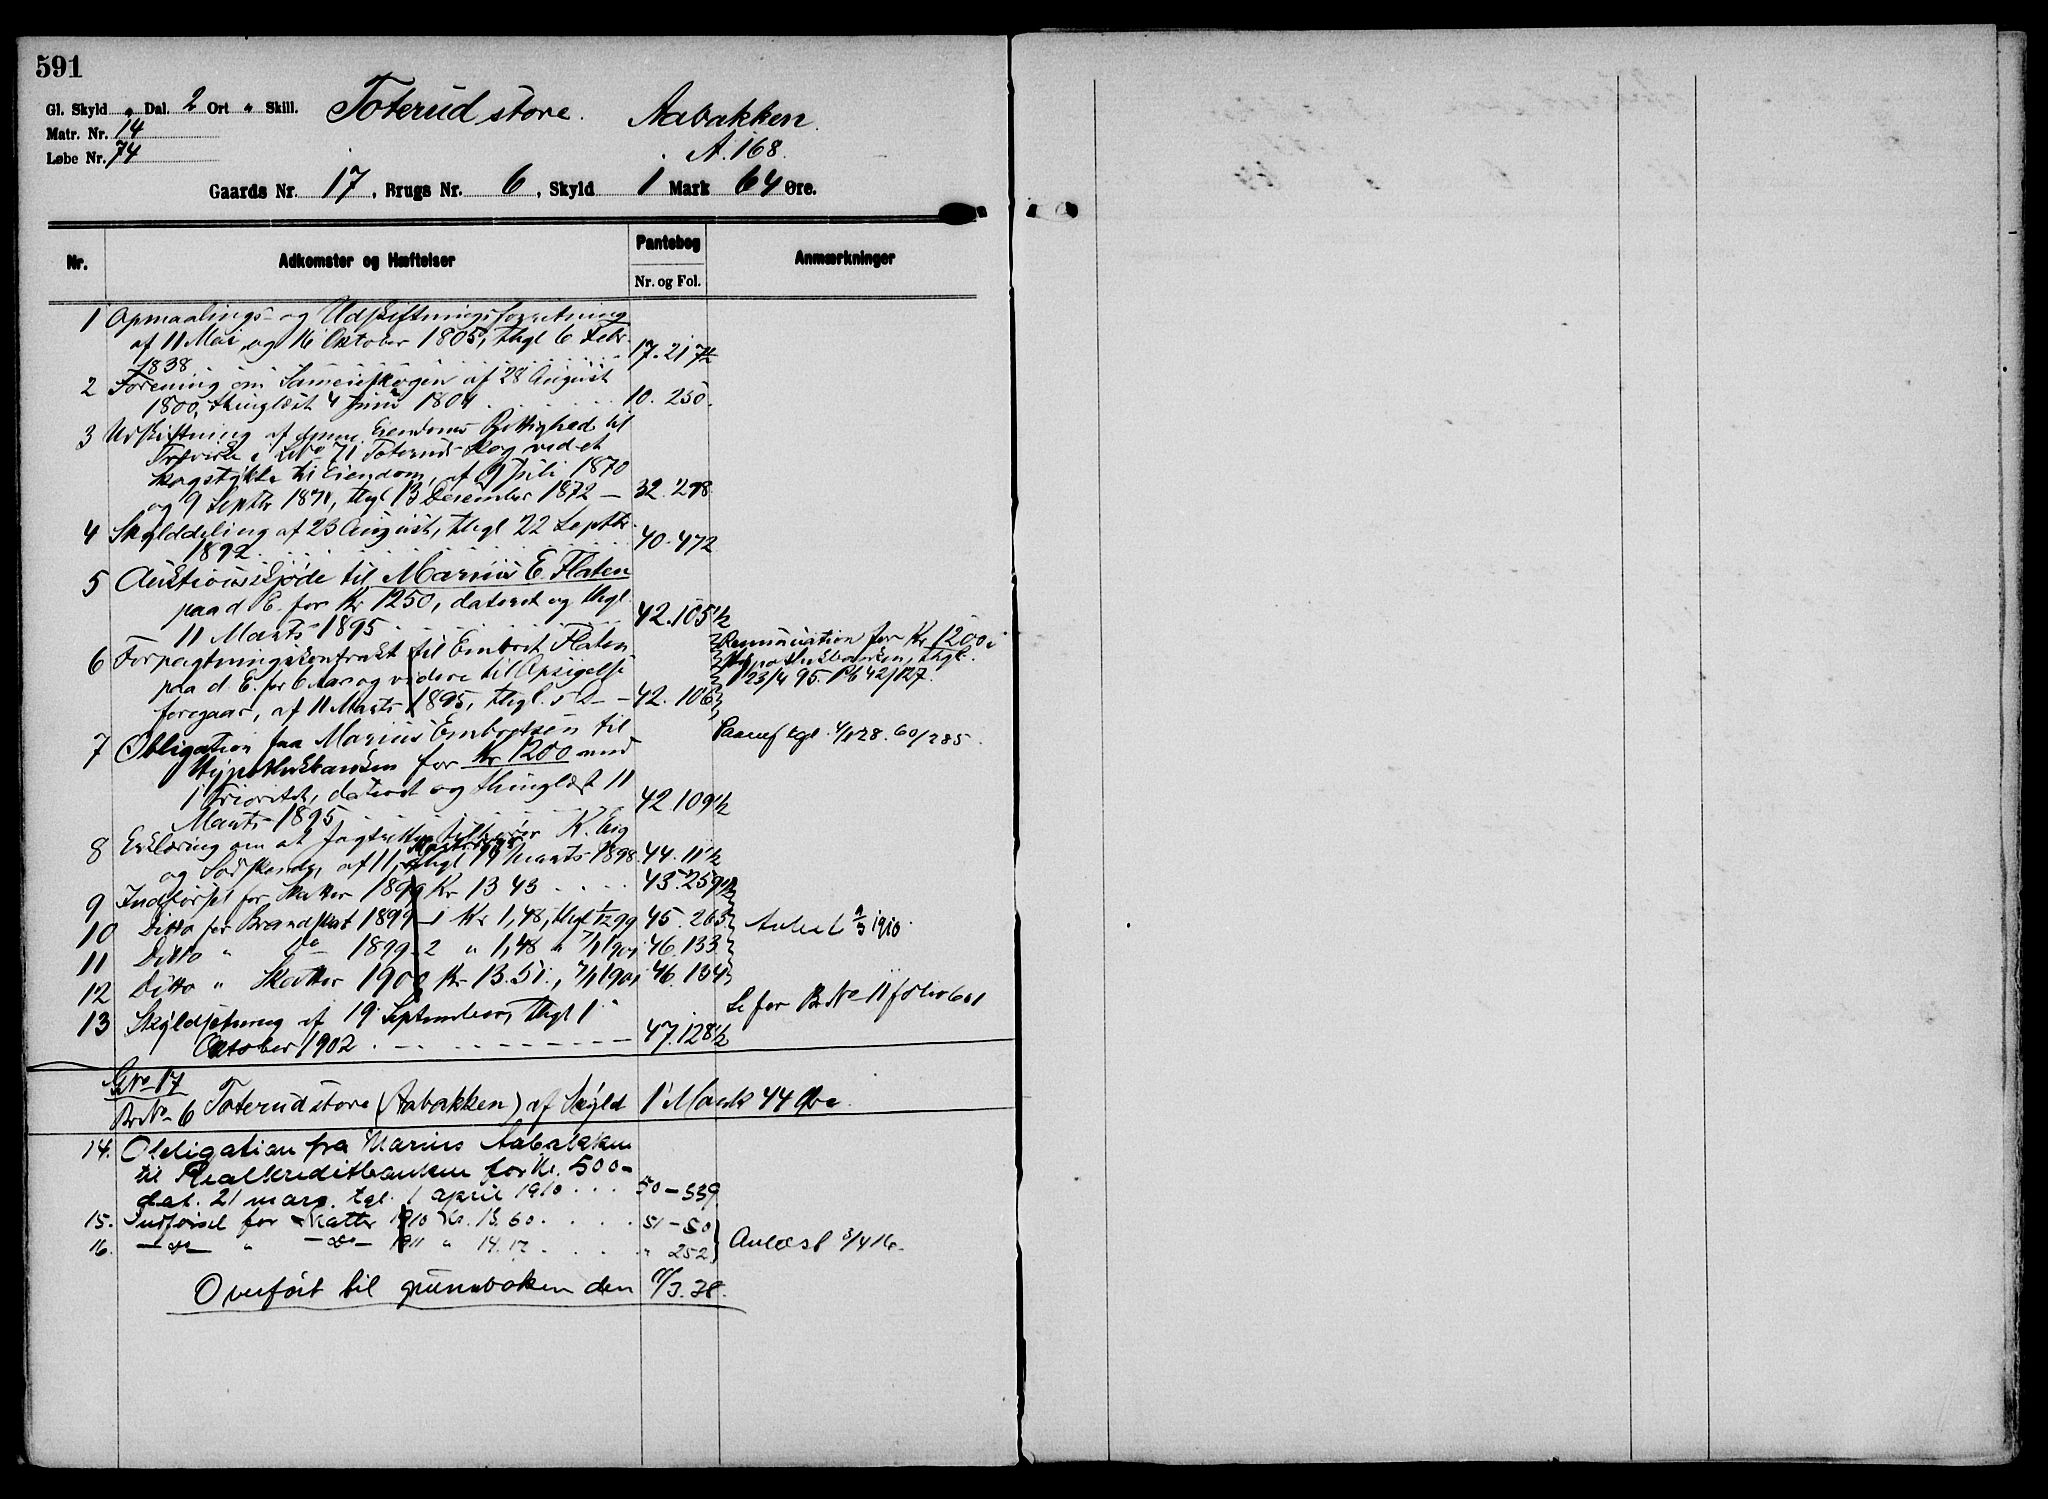 591
Gl. Skyld " Dal. 2 Ort " Skill. Toterud store. Aabakken.
Matr. Nr. 14 A. 168.
Løbe Nr. 74
Gaards Nr. 17, Brugs Nr. 6, Skyld 1 Mark 64 Øre.
Nr. Adkomster og Hæftelser Pantebog Nr. og Fol. Anmærkninger
1 Opmaalings- og Udskiftningsforretning
af 11 Mai og 16 Oktober 1805, thgl 6 Febr.
1838 17. 217
2 Forening om Sameieskogen af 28 August
1800, thinglæst 4 Juni 1804 10. 250.
3 Udskiftning af Eiendoms Rettighed til
i LNo 71 Toteruds Skog ved et
skogstykke til Eiendom, af 9 Juli 1870
og 9 Septbr 1871, thgl 13 Desember 1872 — 32. 298
4 Skylddeling af 23 August, thgl 22 Septbr.
1892. 40. 472
5 Auktionsskjøde til Marius E. Flaten
paa d. E. for Kr 1250, dateret og thgl.
11 Marts 1895 42. 105½
6 Forpagtningskontrakt til Embret Flaten
paa d. E. for 6 Aar og videre til Opsigelse
foregaar, af 11 Marts 1895, thgl. s. D — 42. 106
Renunciation for Kr 1200 i
Hypothekbanken, thgl.
23/4 95. Pb 42/127.
7 Obligation fra Marius Embretsen til
Hypothekbanken for Kr 1200 med
1 Prioritet, dateret og thinglæst 11
Marts 1895 42. 109½
8 Erklæring om at Jagtretten tilhører K. Eig
og Sødskende, af 11, thgl 19 Marts 1898 44. 11½
9 Indførsel for Skatter 1899 Kr 13 43 45. 259½
10 Ditto for Brandskat 1899 1 Kr 1,48, thgl 1/12 99 45. 265
11 Ditto " do 1899 2 " 1,48 " 7/1 1901 46. 133
12 Ditto " Skatter 1900 Kr 13.51., 7/1 1901 46. 134
Avlæst 2/3 1910
13 Skyldsetning af 19 September, thgl 1
Oktober 1902 47. 128½
Se for BrNo 11 folio 601
GNo 17
BrNo 6 Toterud store (Aabakken) af Skyld 1 Mark 44 Øre
14. Obligation fra Marius Aabakken
til Realkreditbanken for Kr. 500-
dat. 21 mars. tgl. 1 april 1910 50-339
15. Indførsel for Skatter 1910 Kr. 13.60. 51-50
16. —do— " —do— 1911 " 14.17 " 252
Avlæst 3/4 16.
Overført til grunnboken den /3.38.